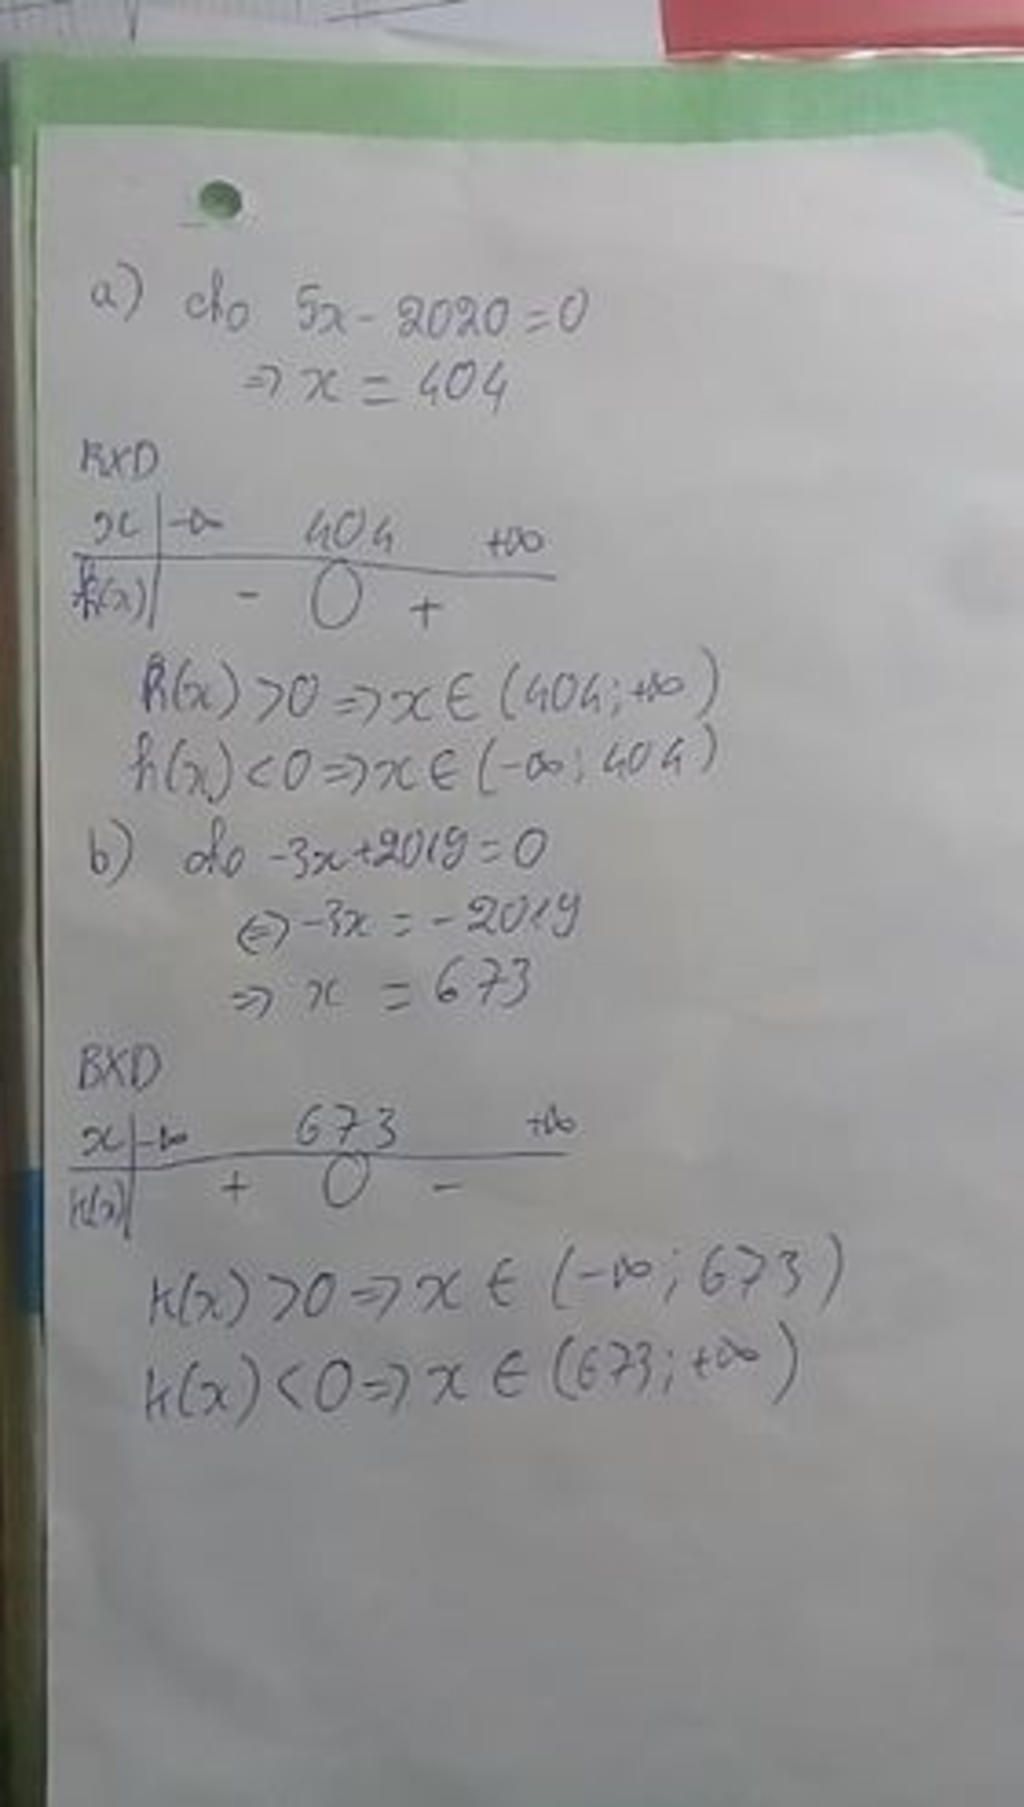 a) cho 5x - 2020 = 0
=> x = 404
BXD
x | -∞ 404 +∞
h(x) | - 0 +
h(x) > 0 => x ∈ (404; +∞)
h(x) < 0 => x ∈ (-∞; 404)
b) cho -3x + 2019 = 0
<=> -3x = -2019
=> x = 673
BXD
x | -∞ 673 +∞
k(x) | + 0 -
k(x) > 0 => x ∈ (-∞; 673)
k(x) < 0 => x ∈ (673; +∞)